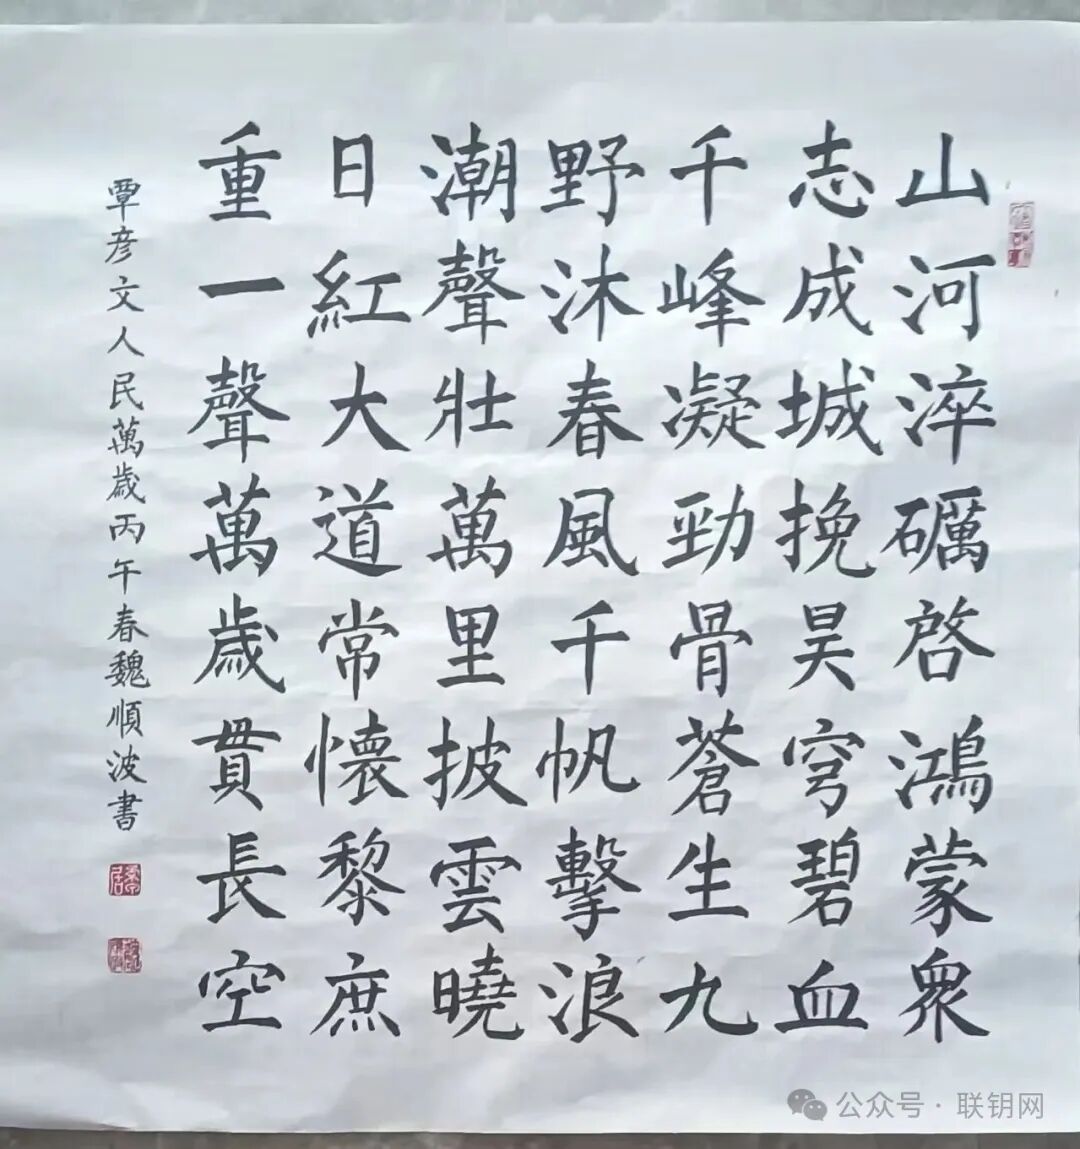 山河淬礪啓鴻蒙衆
志成城挽昊穹碧血
千峰凝勁骨蒼生九
野沐春風千帆擊浪
潮聲壯萬里披雲曉
日紅大道常懷黎庶
重一聲萬歲貫長空
覃彦文人民萬歲丙午春魏順波書
公众号·联钥网